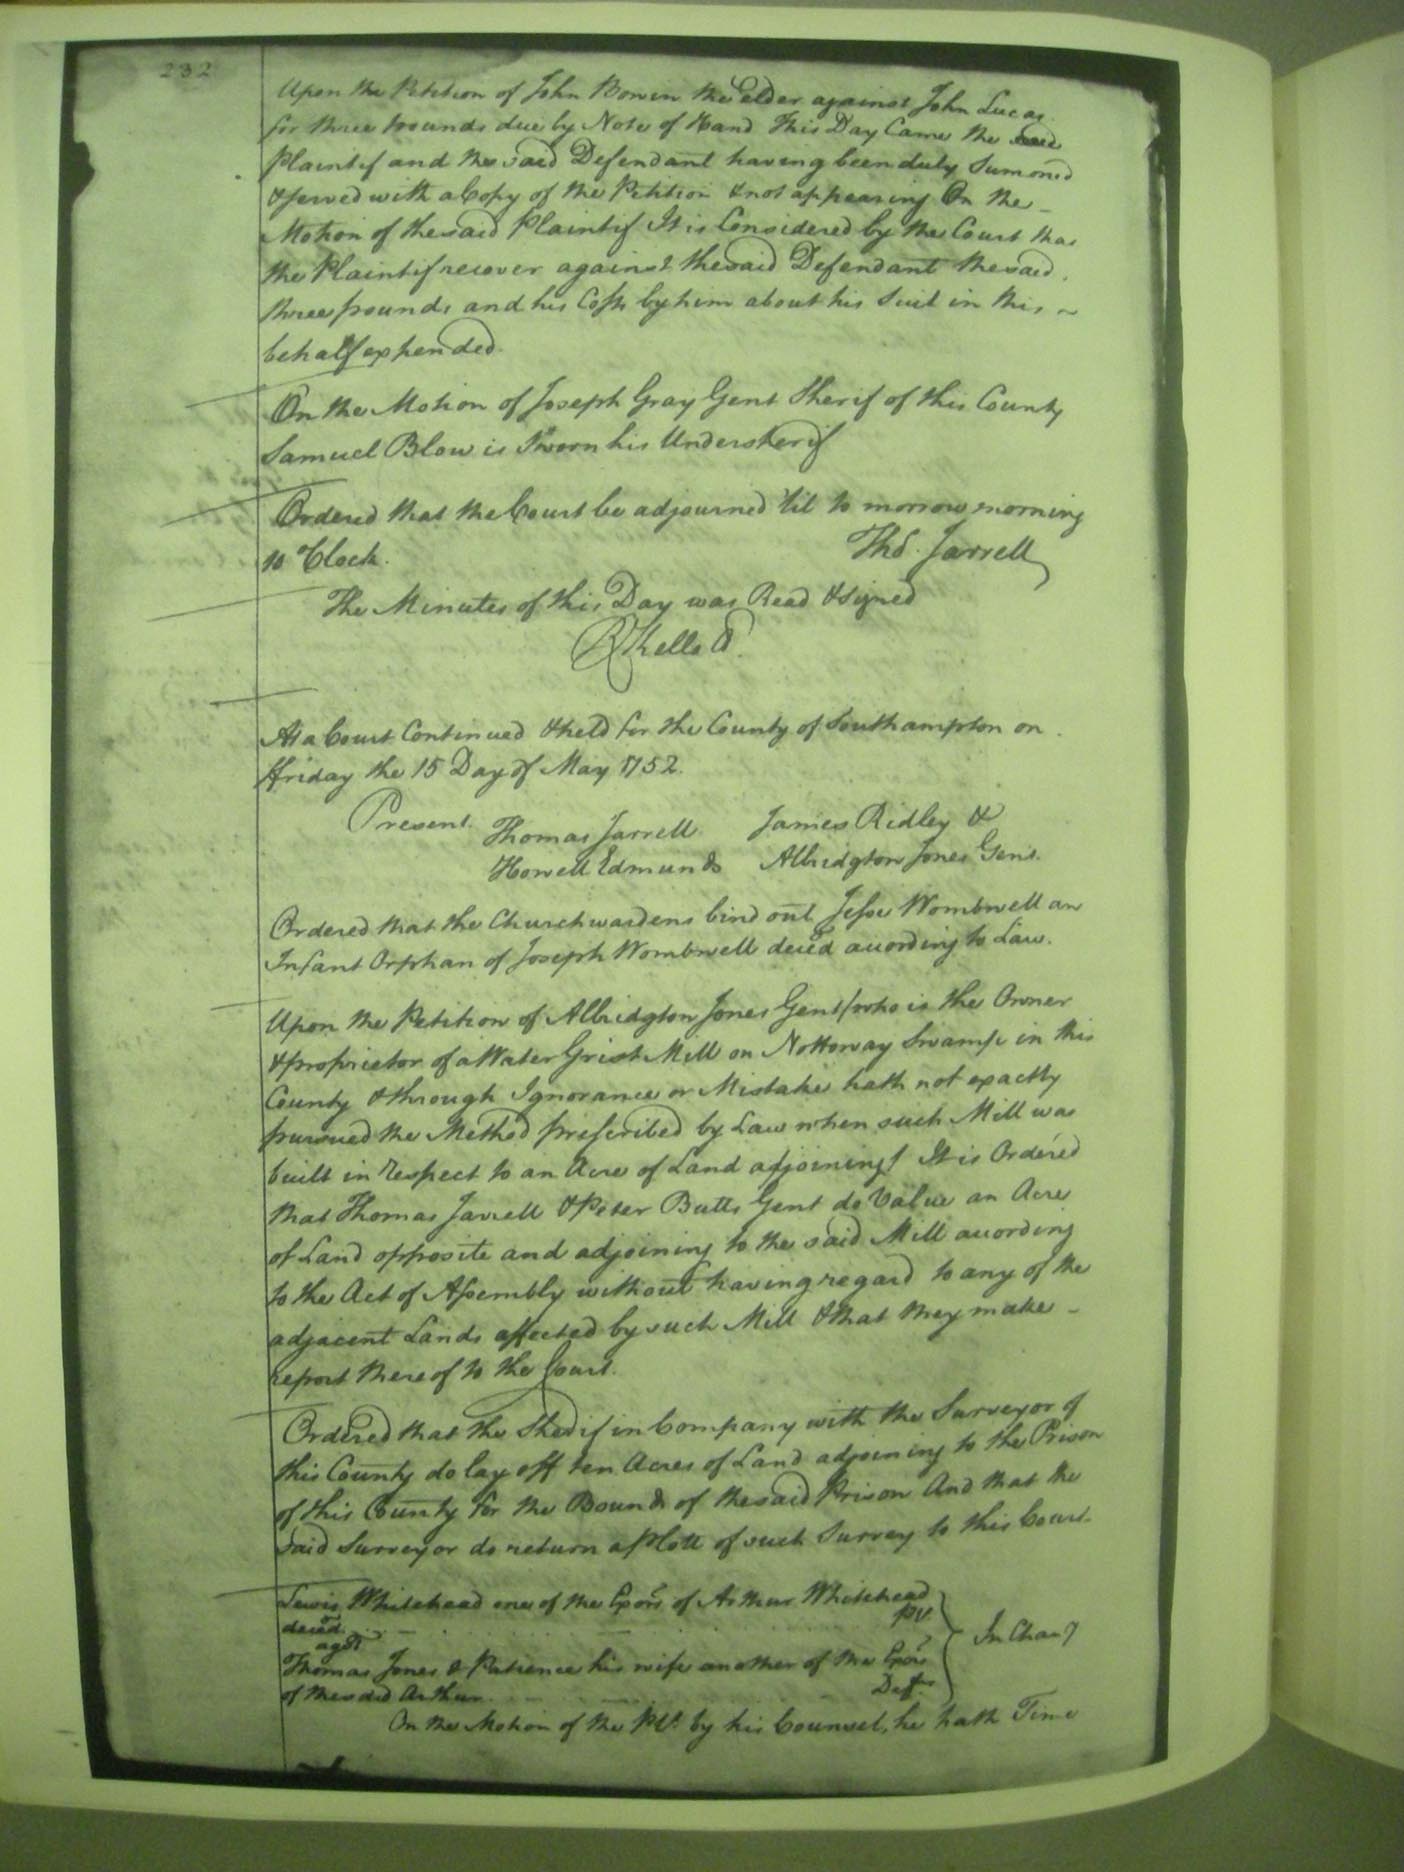 232
Upon the Petition of John Bowin the Elder against John Lucas
for three pounds due by Note of Hand This Day Came the said
Plaintif and the said Defendant having been duly Sumoned
& served with a Copy of the Petition & not appearing On the
Motion of the said Plaintif It is Considered by the Court that
the Plaintif recover against the said Defendant the said
three pounds and his Costs by him about his Suit in this
behalf expended.
On the Motion of Joseph Gray Gent Sherif of this County
Samuel Blow is Sworn his Undersherif
Ordered that the Court be adjourned 'til to morrow morning
10 oClock. Thos. Jarrell
The Minutes of this Day was Read & signed
At a Court Continued & held for the County of Southampton on
ffriday the 15 Day of May 1752.
Present. Thomas Jarrell James Ridley &
Howell Edmunds Albridgton Jones Gent.
Ordered that the Churchwardens bind out Jesse Wombwell an
Infant Orphan of Joseph Wombwell deced according to Law.
Upon the Petition of Albridgton Jones Gent (who is the Owner
& proprietor of a Water Grist Mill on Nottoway Swamp in this
County & through Ignorance or Mistake hath not exactly
pursued the Method prescribed by Law when such Mill was
built in respect to an Acre of Land adjoining) It is Ordered
that Thomas Jarrell & Peter Butts Gent do Value an Acre
of Land opposite and adjoining to the said Mill according
to the Act of Assembly without having regard to any of the
adjacent Lands affected by such Mill & that they make
report thereof to the Court.
Ordered that the Sherif in Company with the Surveyor of
this County do lay off ten Acres of Land adjoining to the Prison
of this County for the Bounds of the said Prison And that the
said Surveyor do return a Plott of such Survey to this Court.
Lewis Whitehead one of the Exors of Arthur Whitehead
deced. Plt
agst
Thomas Jones & Patience his wife another of the Exors
of the said Arthur Defts
In Chan
On the Motion of the Plt. by his Counsel, he hath Time